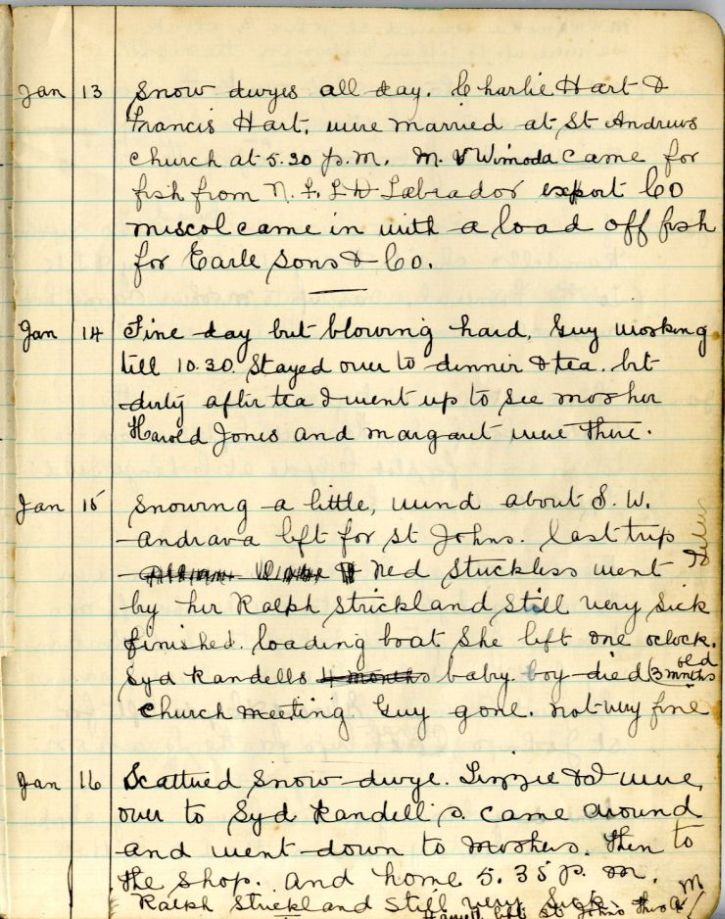 Jan 13 Snow dwyes all day. Charlie Hart &
Francis Hart, were married at St Andrews
church at 5.30 p.m. M.V Wimoda came for
fish from N.F.L.D Labrador export Co
miscol came in with a load off fish
for Earle Sons & Co.
Jan 14 Fine day but blowing hard. Guy working
till 10.30. Stayed over to dinner & tea. bit
dirty after tea I went up to see mosher
Harold Jones and Margaret were there.
Jan 15 Snowing a little, wind about S.W.
andrava left for St Johns. last trip
Ned Stuckless went
by her Ralph Strickland still very sick
finished loading boat She left one oclock.
Syd Randells 4 months baby boy died (3 mnths old
church meeting Guy gone. not very fine
Jan 16 Scattred Snow dwye. Lizzie & I were,
over to Syd Randell's. came around
and went down to Moshers. then to
the shop. and home 5.35 p. m.
Ralph Strickland Still very Sick
left St Johns